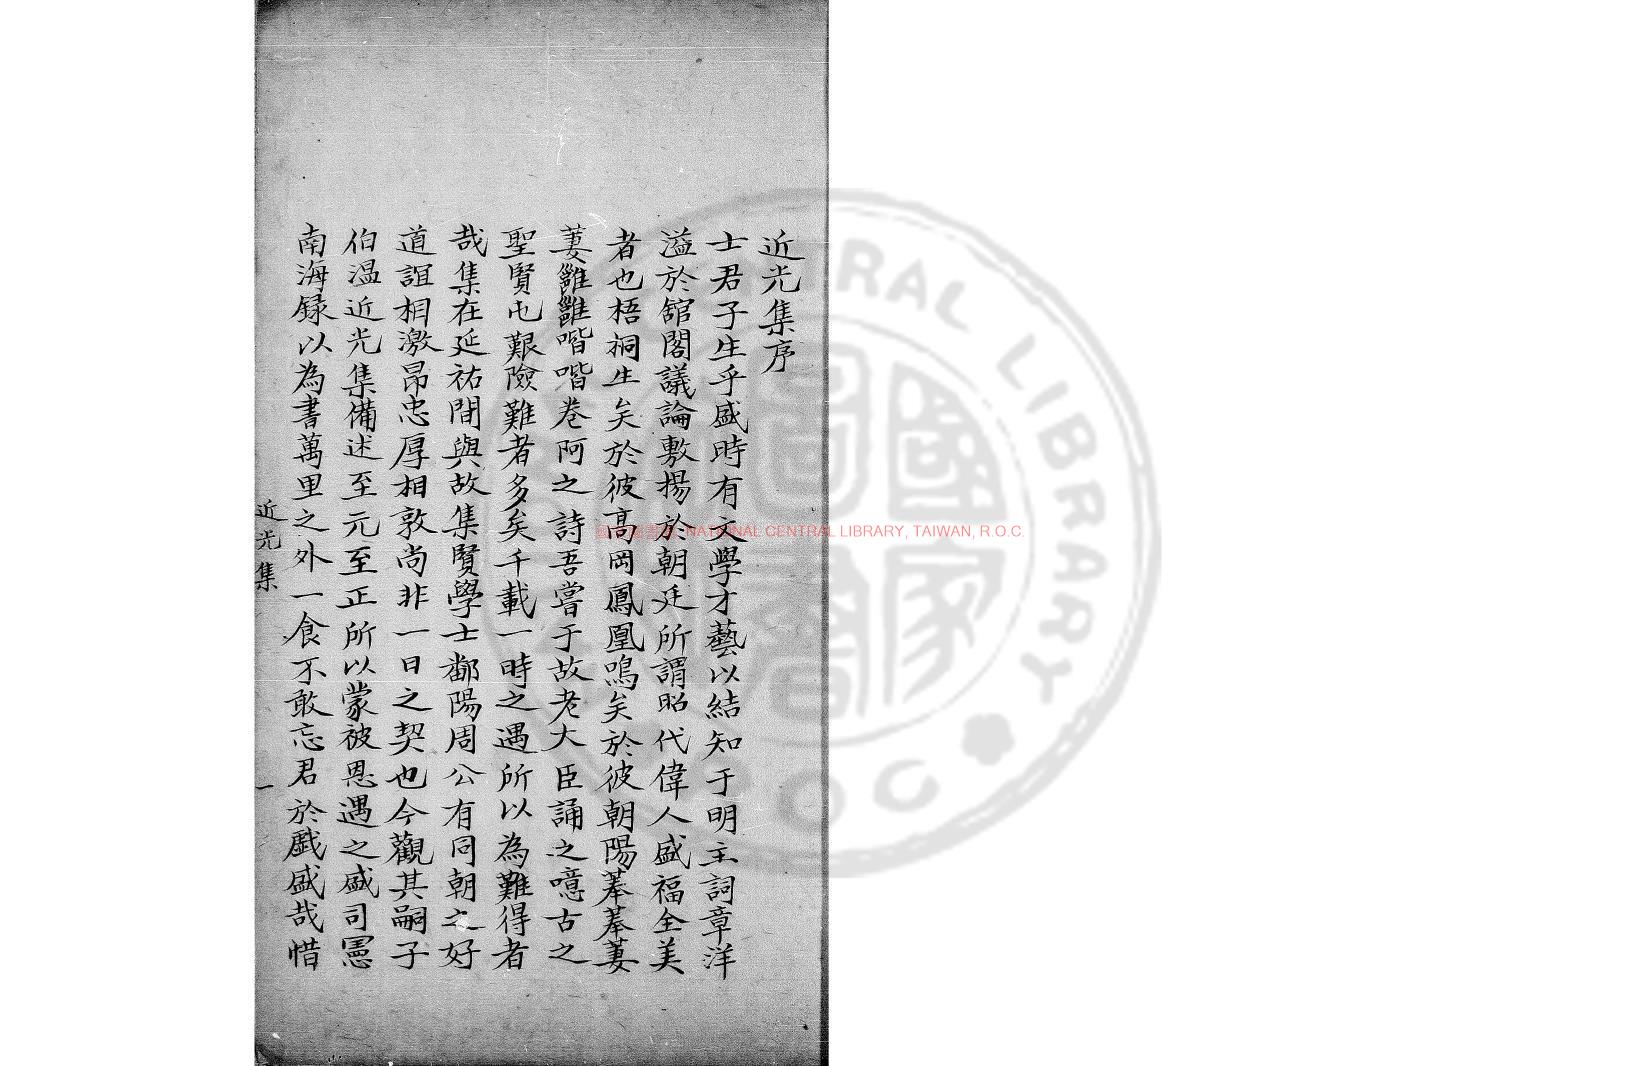 近光集序
士君子生乎盛時有文學才藝以結知于明主詞章洋
溢於舘閣議論敷揚於朝廷所謂昭代偉人盛福全美
者也梧桐生矣於彼高岡鳳凰鳴矣於彼朝陽菶菶萋
萋雝雝喈喈卷阿之詩吾嘗于故老大臣誦之噫古之
聖賢屯艱險難者多矣千載一時之遇所以為難得者
哉集在延祐間與故集賢學士鄱陽周公有同朝之好
道誼相激昂忠厚相敦尚非一日之契也今觀其嗣子
伯温近光集備述至元至正所以蒙被恩遇之盛司憲
南海録以為書萬里之外一食不敢忘君於戲盛哉惜
近光集
一
NATIONAL CENTRAL LIBRARY, TAIWAN, R.O.C.